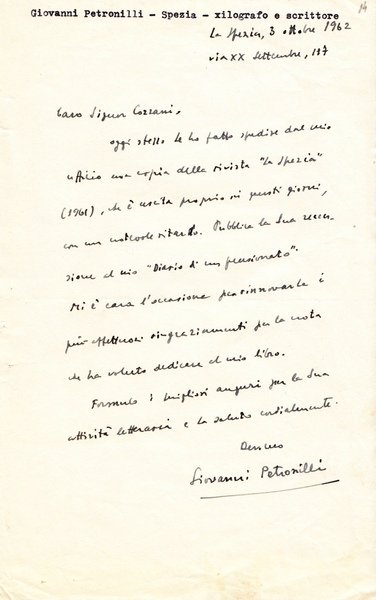 14
Giovanni Petronilli - Spezia - xilografo e scrittore
La Spezia, 3 ottobre 1962
via XX Settembre, 137
Caro Signor Cozzani,
oggi stesso Le ho fatto spedire dal mio
ufficio una copia della rivista "La Spezia"
(1961), che è uscita proprio in questi giorni,
con un notevole ritardo. Pubblica la Sua recen-
sione al mio "Diario di un pensionato".
Mi è cara l'occasione per rinnovarLe i
più affettuosi ringraziamenti per la nota
che ha voluto dedicare al mio libro.
Formulo i migliori auguri per la Sua
attività letteraria e La saluto cordialmente.
Dev.mo
Giovanni Petronilli